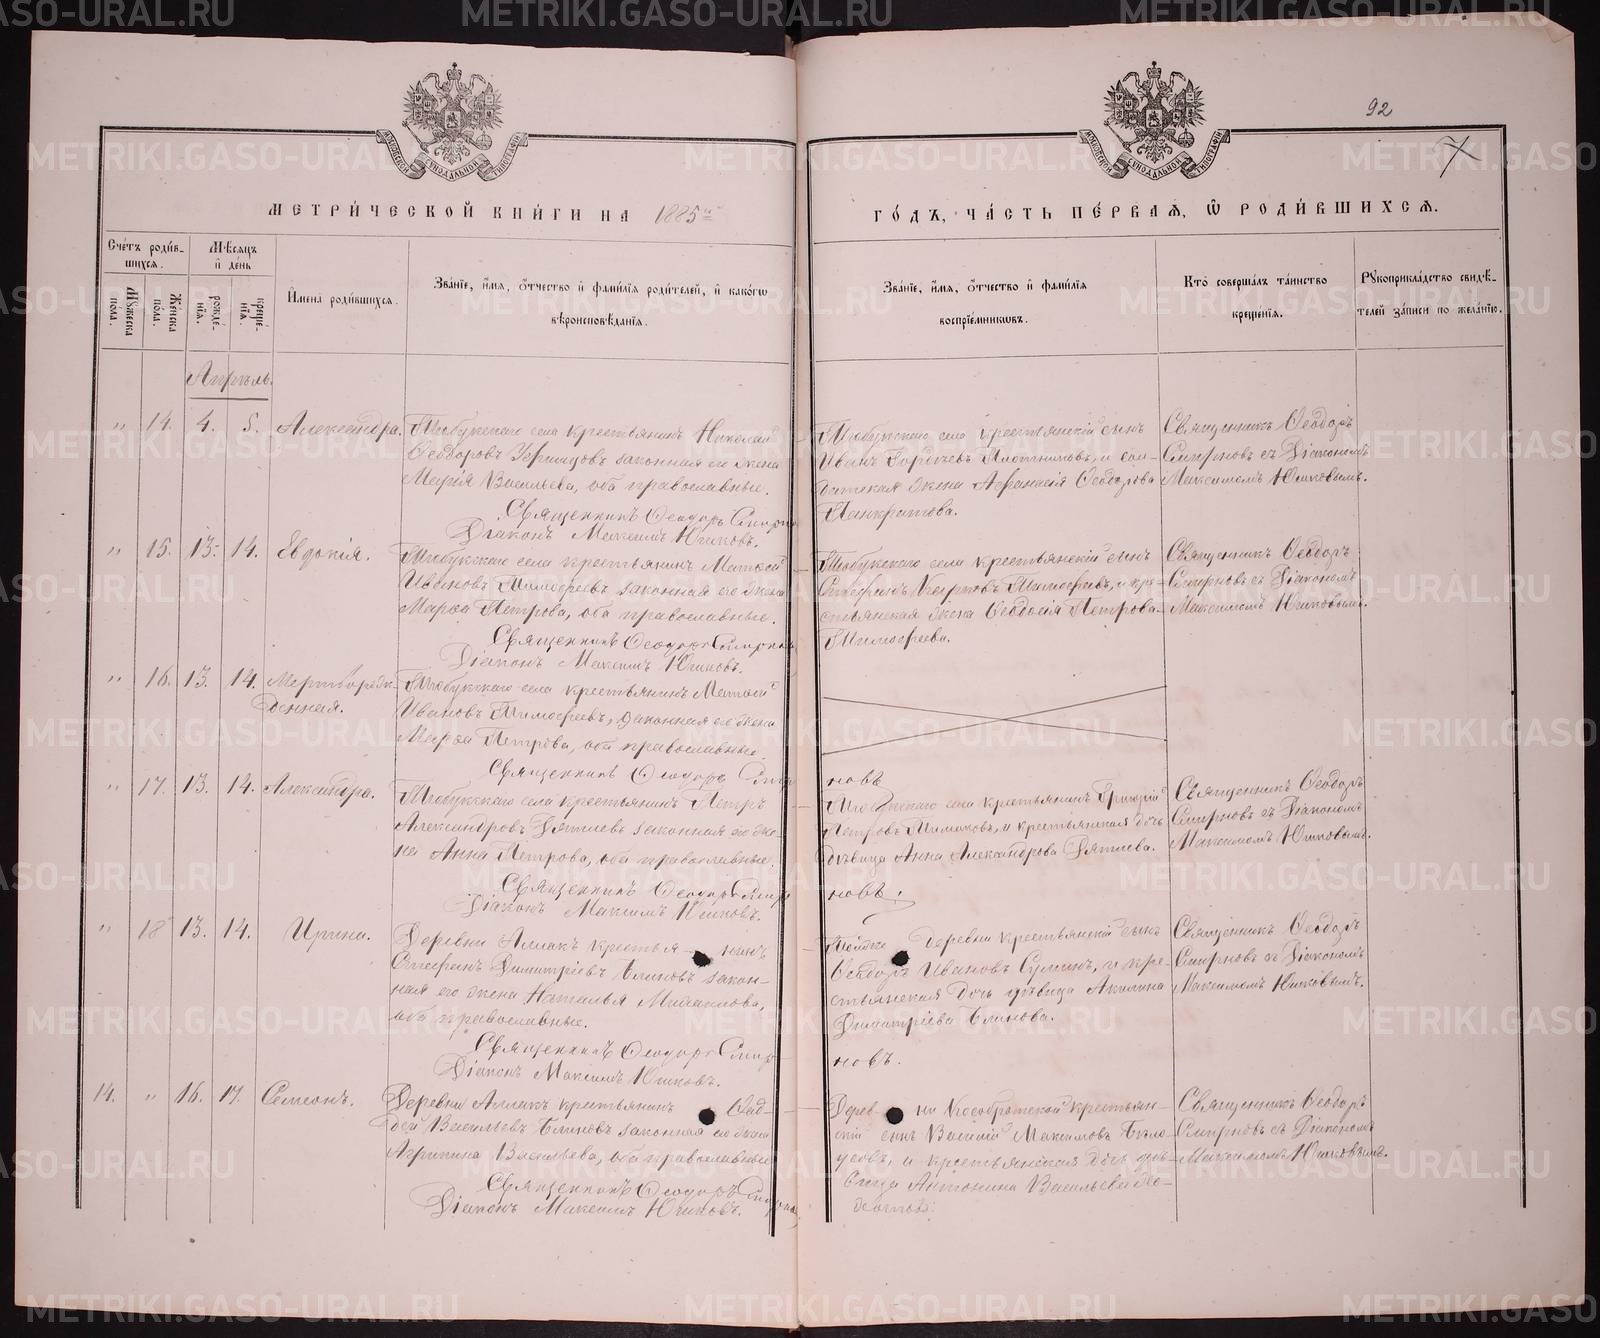 92
7
МЕТРИ́ЧЕСКОЙ КНИ́ГИ НА 1885й
ГО́ДЪ, ЧА́СТЬ ПЕ́РВАЯ, Ѡ РОДИ́ВШИХСЯ.
Сче́тъ роди́вшихся.
Мѣ́сяцъ и҆ де́нь
Му́жеска пола.
Же́нска пола.
рожде́нїя.
креще́нїя.
И҆мена̀ роди́вшихся.
Зва́нїе, и҆́мя, ѻ҆́тчество и҆ фами́лїя роди́телей, и҆ како́гѡ
вѣроисповѣ́данїя.
Зва́нїе, и҆́мя, ѻ҆́тчество и҆ фами́лїя
воспрїе́мникѡвъ.
Кто̀ соверша́лъ та́инство
креще́нїя.
Рꙋкоприкла́дство свидѣ́-
телей за́писи по жела́нїю.
Апрѣль.
" 14. 4. 5. Александра.
Тюбукскаго села крестьянинъ Николай
Ѳеодоровъ законная его жена
Марія Васильева, оба православные.
Священникъ Ѳеодоръ Смирнов
Діаконъ Максимъ Юшковъ.
Тюбукскаго села крестьянскій сынъ
Иванъ Плотниковъ, и сол-
датская жена Афанасія Ѳеодорова
Панкратова.
Священникъ Ѳеодоръ
Смирновъ съ Діакономъ
Максимомъ Юшковымъ.
" 15. 13. 14. Евдокія.
Тюбукскаго села крестьянинъ Матѳей
Ивановъ Тимофеевъ законная его жена
Марѳа Петрова, оба православные.
Священникъ Ѳеодоръ Смирновъ
Діаконъ Максимъ Юшковъ.
Тюбукскаго села крестьянскій сынъ
Стефанъ Карповъ Тимофеевъ, и кре-
стьянская жена Ѳеодосія Петрова
Тимофеева.
Священникъ Ѳеодоръ
Смирновъ съ Діакономъ
Максимомъ Юшковымъ.
" 16. 13. 14. Мертворож-
денная.
Тюбукскаго села крестьянинъ Матѳей
Ивановъ Тимофеевъ, законная его жена
Марѳа Петрова, оба православные
Священникъ Ѳеодоръ Смир
новъ
" 17. 13. 14. Александра.
Тюбукскаго села крестьянинъ Петръ
Александровъ Дятлевъ законная его же-
на Анна Петрова, оба православные.
Священникъ Ѳеодоръ Смир
Діаконъ Максимъ Юшковъ.
Тюбукскаго села крестьянинъ Григорій
Петровъ и крестьянская дочь
дѣвица Анна Александрова Дятлева.
новъ.
Священникъ Ѳеодоръ
Смирновъ съ Діакономъ
Максимомъ Юшковымъ.
" 18 13. 14. Ирина.
Деревни Аллакъ крестья- нинъ
Стефанъ Димитріевъ Блиновъ закон-
ная его жена Наталья Михайлова,
оба православные.
Священникъ Ѳеодоръ Смир-
Діаконъ Максимъ Юшковъ.
Той же деревни крестьянскій сынъ
Ѳеодоръ Ивановъ и кре-
стьянская дочь дѣвица Акилина
Димитріева Блинова.
новъ.
Священникъ Ѳеодоръ
Смирновъ съ Діакономъ
Максимомъ Юшковымъ.
14. " 16. 17. Симеонъ.
Деревни Аллакъ крестьянинъ Фад-
дей Васильевъ Блиновъ законная его жена
Агрипина Васильева, оба православные
Священникъ Ѳеодоръ Смирновъ
Діаконъ Максимъ Юшковъ.
Дерев- ни крестьян-
скій сынъ Василій Максимовъ Бѣло-
усовъ, и крестьянская дочь дѣ-
вица Антонина Васильева
Священникъ Ѳеодоръ
Смирновъ съ Діакономъ
Максимомъ Юшковымъ.
METRIKI.GASO-URAL.RU